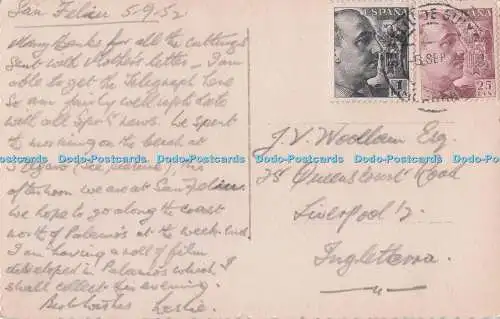 San Feliu 5-9-52
Many thanks for all the cuttings
sent with Mother's letter - I am
able to get the Telegraph here
so am fairly well up to date
with all sports news. We spent
the morning on the beach at
S'Agaro (see picture), this
afternoon we are at San Feliu.
We hope to go along the coast
north of Palamos at the week-end
I am having a roll of film
developed in Palamos which I
shall collect this evening.
Best Wishes Leslie.
ESPAÑA
1
PTA
ESPAÑA
25
CTS
5 SEP
J.V. Woollam Esq
75 Queens Court Road
Liverpool 12
Ingleterra.
Dodo-Postcards Dodo-Postcards Dodo-Postcards Dodo-Postcards